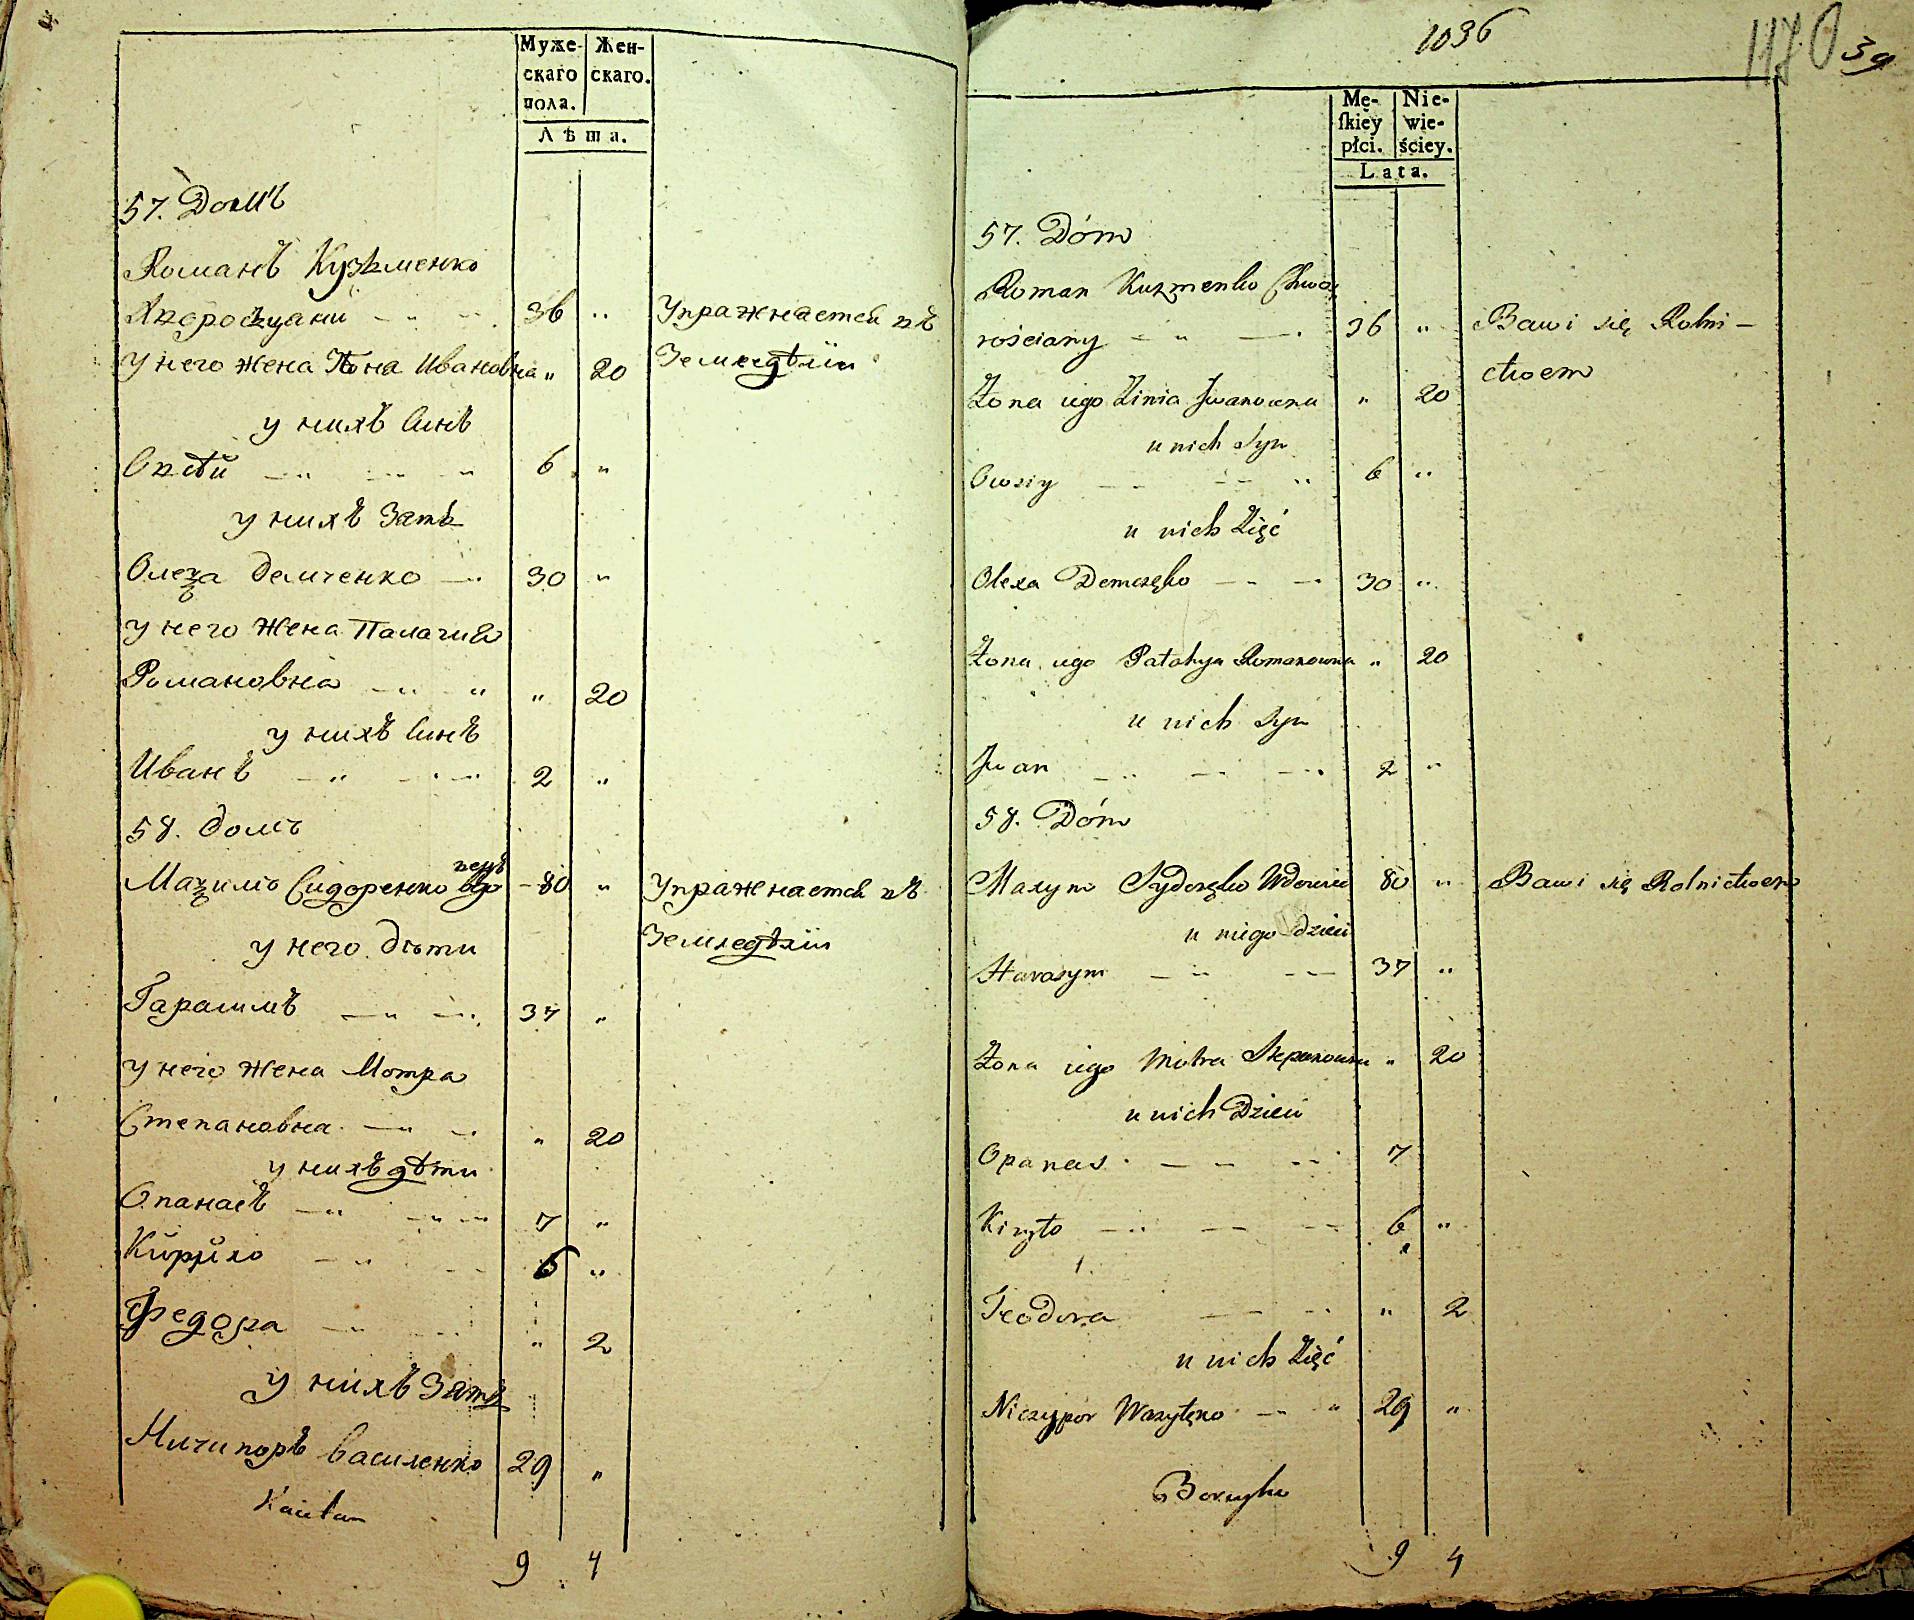 Муже-
скаго
пола.
Жен-
скаго.
Лѣта.
57. Домъ
Романъ Кузьменко
36 „ Упражнается въ
у него жена Ивановна „ 20 Земледѣліи
у нихъ Синъ
Овсѣй 6 „
у нихъ Зять
Олеѯа Демченко 30 „
у него Жена Палагия
Романовна „ 20
у нихъ Синъ
Иванъ 2 „
58. Домъ
Маѯимъ Сидоренко вдовецъ 80 „ Упражнается въ
у него дѣти Земледѣліи
Гарасимъ 37 „
у него Жена Мотра
Степановна „ 20
у нихъ дѣти
Опанасъ 7 „
Кирило 6 „
Федора „ 2
у нихъ Зять
Ничипоръ Василенко 29 „
9 4
1036
1170
39
Mę-
ſkiey
płci.
Nie-
wie-
ściey.
Lata.
57. Dóm
Roman Kuzmenko Chwo-
rościany 36 „ Bawi się Rolni-
ctwem
Żona iego Zinia Iwanowna „ 20
u nich Syn
Owsiy 6 „
u nich Zięć
Olexa Demczęko 30 „
Żona iego Patahya Romanowna „ 20
u nich Syn
Iwan 2 „
58. Dóm
Maxym Sydoręko Wdowiec 80 „ Bawi się Rolnictwem
u niego dzieci
Harasym 37 „
Żona iego Motra Stepanowna „ 20
u nich Dzieci
Opanas 7
Kiryło 6 „
Teodora „ 2
u nich Zięć
Niczypor Wasylęko 29 „
9 4